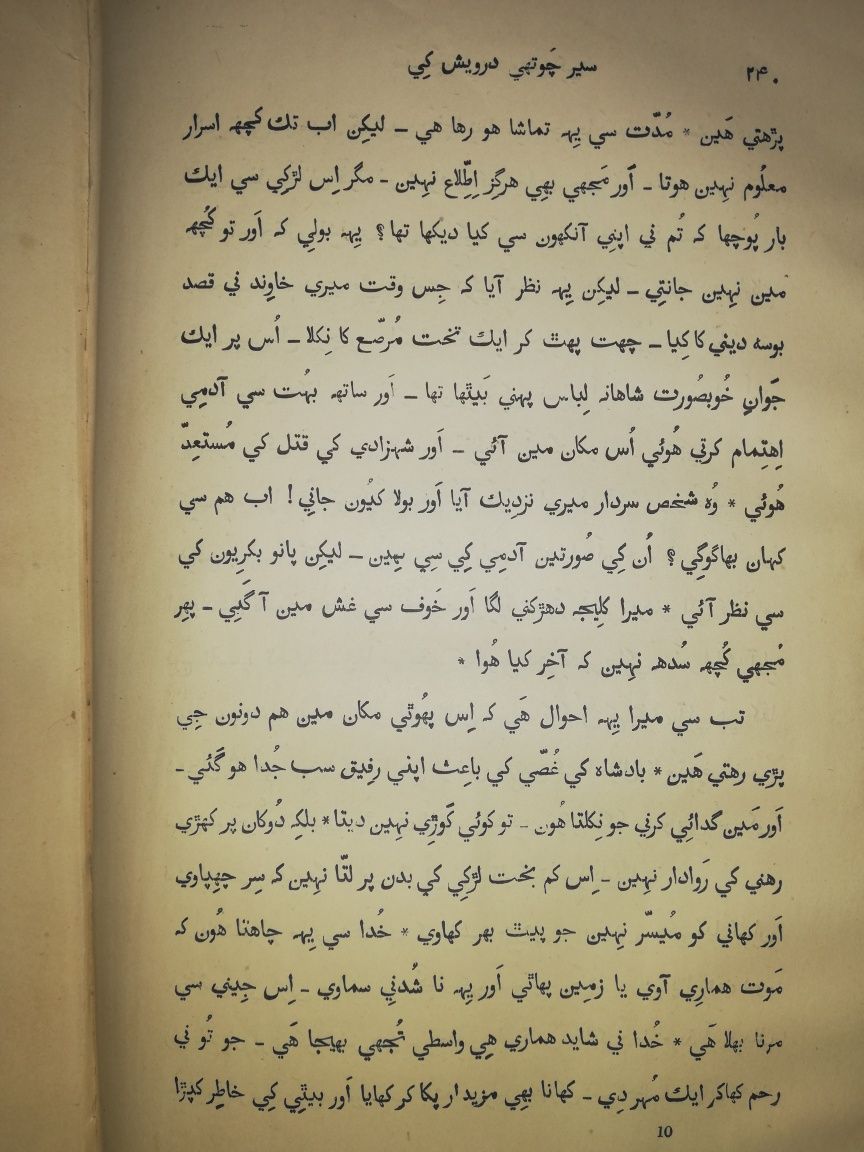 ۲۴۰ سير چَوتھي درويش کِي
پڑھتي ھَين * مُدّت سي يِہہ تماشا ھو رھا ھي ــ ليکِن اب تك کچھہ اسرار
معلُوم نہِين ھوتا ــ اَور مَجھي بھِي ھرگِز اِطِّلاع نہِين ــ مگر اِس لڑکِي سي ايك
بار پُوچھا کہ تُم ني اپنِي آنکھون سي کيا ديکھا تھا ؟ يِہہ بولي کہ اَور تو کُچھہ
مين نہِين جانتِي ــ ليکِن يِہہ نظر آيا کہ جِس وقت ميري خاوِند ني قصد
بوسہ ديني کا کِيا ــ چھت پھٹ کر ايك تخت مُرصّع کا نِکلا ــ اُس پر ايك
جَوانِ خُوبصُورت شاھانہ لِباس پہني بَيٹھا تھا ــ اَور ساتھہ بہُت سي آدمِي
اِھتِمام کرتي ھُوئي اُس مکان مين آئي ــ اَور شہزادي کي قتل کي مُستعِدّ
ھُوئي * وُہ شخص سردار ميري نزدِيك آيا اَور بولا کيُون جانِي ! اب ھم سي
کہان بھاگوگِي ؟ اُن کِي صُورتين آدمِي کِي سِي تہِين ــ ليکِن پانو بکرِيون کي
سي نظر آئي * ميرا کلِيجہ دھڑکني لگا اَور خَوف سي غش مين آ گَئِي ــ پھِر
مُجھي کُچھہ سُدھہ نہِين کہ آخِر کيا ھُوا *
تب سي ميرا يِہہ احوال ھَي کہ اِس پھُوٹي مکان مين ھم دونون جِي
پڑي رھتي ھَين * بادشاہ کي غُصّي کي باعِث اپني رفِيق سب جُدا ھو گَئي ــ
اَور مَين گدائِي کرني جو نِکلتا ھُون ــ تو کوئي کَوڑِي نہِين ديتا * بلکِہ دُوکان پر کھڑي
رھني کي رَوادار نہِين ــ اِس کم بخت لڑکِي کي بدن پر لتّا نہِين کہ سِر چھِپاوي
اَور کھاني کو مُيسّر نہِين جو پيٹ بھر کھاوي * خُدا سي يِہہ چاھتا ھُون کہ
مَوت ھمارِي آوي يا زمِين پھاٹي اَور يِہہ نا شُدنِي سماوي ــ اِس جِيني سي
مرنا بھلا ھَي * خُدا ني شايد ھماري ھِي واسطي تُجھي بھيجا ھَي ــ جو تُو ني
رحم کھاکر ايك مُہر دِي ــ کھانا بھِي مزيدار پکا کر کھايا اَور بيٹِي کِي خاطِر کپڑا
10